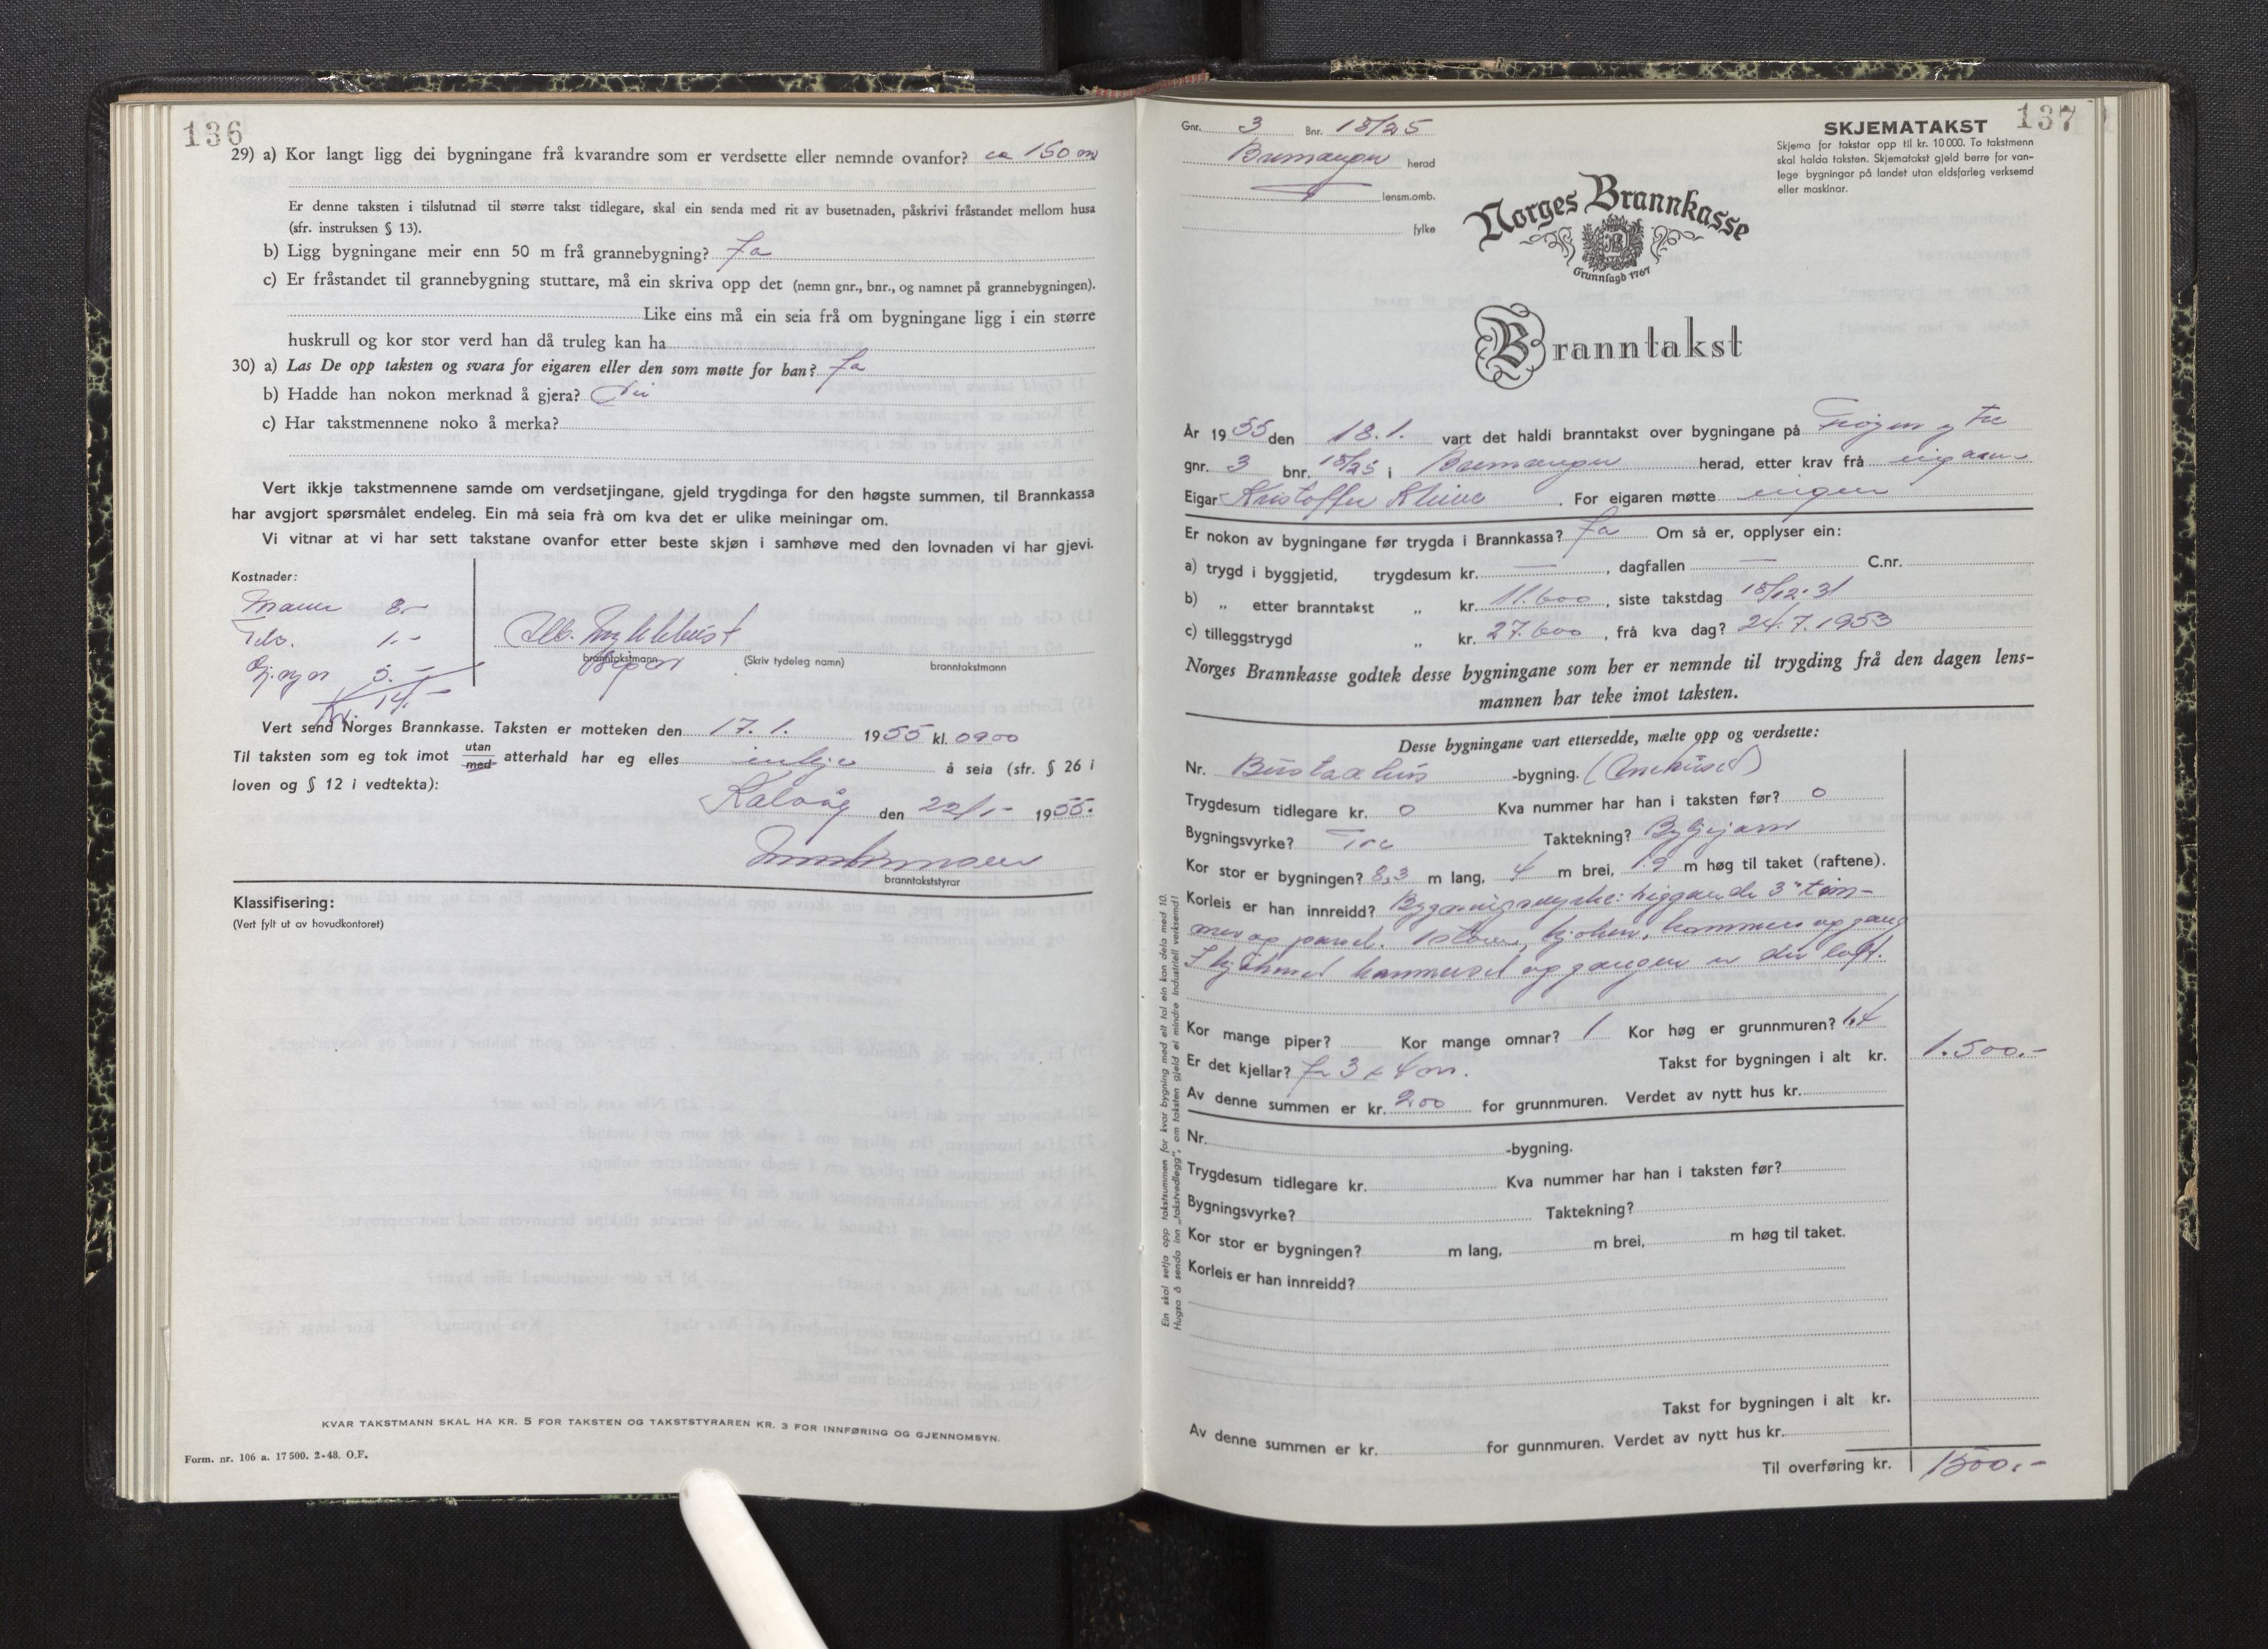 136
29) a) Kor langt ligg dei bygningane frå kvarandre som er verdsette eller nemnde ovanfor? ca 150 m
Er denne taksten i tilslutnad til større takst tidlegare, skal ein senda med rit av busetnaden, påskrivi fråstandet mellom husa
(sfr. instruksen § 13).
b) Ligg bygningane meir enn 50 m frå grannebygning? Ja
c) Er fråstandet til grannebygning stuttare, må ein skriva opp det (nemn gnr., bnr., og namnet på grannebygningen).
Like eins må ein seia frå om bygningane ligg i ein større
huskrull og kor stor verd han då truleg kan ha
30) a) Las De opp taksten og svara for eigaren eller den som møtte for han? Ja
b) Hadde han nokon merknad å gjera? Nei
c) Har takstmennene noko å merka?
Vert ikkje takstmennene samde om verdsetjingane, gjeld trygdinga for den høgste summen, til Brannkassa
har avgjort spørsmålet endeleg. Ein må seia frå om kva det er ulike meiningar om.
Vi vitnar at vi har sett takstane ovanfor etter beste skjøn i samhøve med den lovnaden vi har gjevi.
Kostnader:
8.-
1.-
5.-
Kr. 14.-
Alb. Myklebust
branntakstmann (Skriv tydeleg namn) branntakstmann
Vert send Norges Brannkasse. Taksten er motteken den 17. 1. 1955 kl. 0900
Til taksten som eg tok imot utan med atterhald har eg elles inkje å seia (sfr. § 26 i
loven og § 12 i vedtekta):
Kalvåg den 22/1- 1955.
branntakststyrar
Klassifisering:
(Vert fylt ut av hovudkontoret)
KVAR TAKSTMANN SKAL HA KR. 5 FOR TAKSTEN OG TAKSTSTYRAREN KR. 3 FOR INNFØRING OG GJENNOMSYN.
Form. nr. 106 a. 17 500. 2-48. O.F.
137
Gnr. 3 Bnr. 18/25
Bremanger herad
lensm.omb.
fylke
SKJEMATAKST
Skjema for takstar opp til kr. 10 000. To takstmenn
skal halda taksten. Skjematakst gjeld berre for van-
lege bygningar på landet utan eldsfarleg verksemd
eller maskinar.
Norges Brannkasse
Grunnlagd 1767
Branntakst
År 1955 den 18.1. vart det haldi branntakst over bygningane på
gnr. 3 bnr. 18/25 i Bremanger herad, etter krav frå eigaren
Eigar Kristoffer. For eigaren møtte eigen
Er nokon av bygningane før trygda i Brannkassa? Ja Om så er, opplyser ein:
a) trygd i byggjetid, trygdesum kr. — , dagfallen — C.nr.
b) „ etter branntakst „ kr. 11.600 , siste takstdag 18/12.31
c) tilleggstrygd „ kr. 27.600 , frå kva dag? 24.7.1953
Norges Brannkasse godtek desse bygningane som her er nemnde til trygding frå den dagen lens-
mannen har teke imot taksten.
Desse bygningane vart ettersedde, mælte opp og verdsette:
Nr. -bygning.
Trygdesum tidlegare kr. 0 Kva nummer har han i taksten før? 0
Bygningsvyrke? Tre Taktekning? Bylgjejarn
Kor stor er bygningen? 8,3 m lang, 4 m brei, 1.9 m høg til taket (raftene).
Korleis er han innreidd? Bygningsvyrke: liggande 3" tøm-
mer og panel. 1 stove, kjøken, kammers og gang
I kjøkenet kammerset og gangen er der loft.
Kor mange piper? Kor mange omnar? 1 Kor høg er grunnmuren? 1.4
Er det kjellar? Ja 3 x 4 m. Takst for bygningen i alt kr. 1.500.-
Av denne summen er kr. 200 for grunnmuren. Verdet av nytt hus kr.
Nr. -bygning.
Trygdesum tidlegare kr. Kva nummer har han i taksten før?
Bygningsvyrke? Taktekning?
Kor stor er bygningen? m lang, m brei, m høg til taket.
Korleis er han innreidd?
Takst for bygningen i alt kr.
Av denne summen er kr. for gunnmuren. Verdet av nytt hus kr.
Til overføring kr. 1500.-
Ein skal setja opp takstsummen for kvar bygning med eit tal ein kan dela med 10.
Hugsa å senda inn „takstvedlegg", om taksten gjeld ei mindre industriell verksemd!